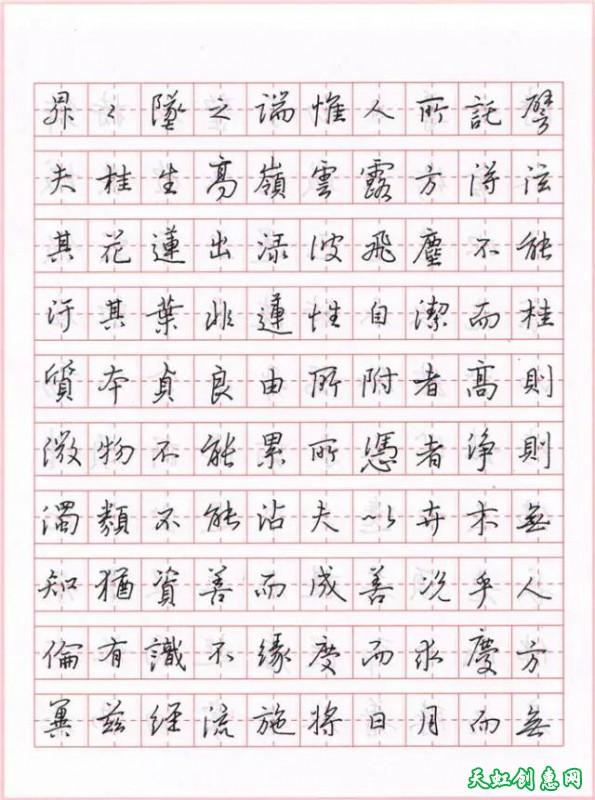 昇々墜之端惟人所託譬
夫桂生高嶺雲露方得泫
其花蓮出渌波飛塵不能
汙其葉非蓮性自潔而桂
質本貞良由所附者高則
微物不能累所憑者淨則
濁類不能沾夫以卉木無
知猶資善而成善况乎人
倫有識不緣慶而求慶方
冀茲經流施將日月而無
天虹创意网